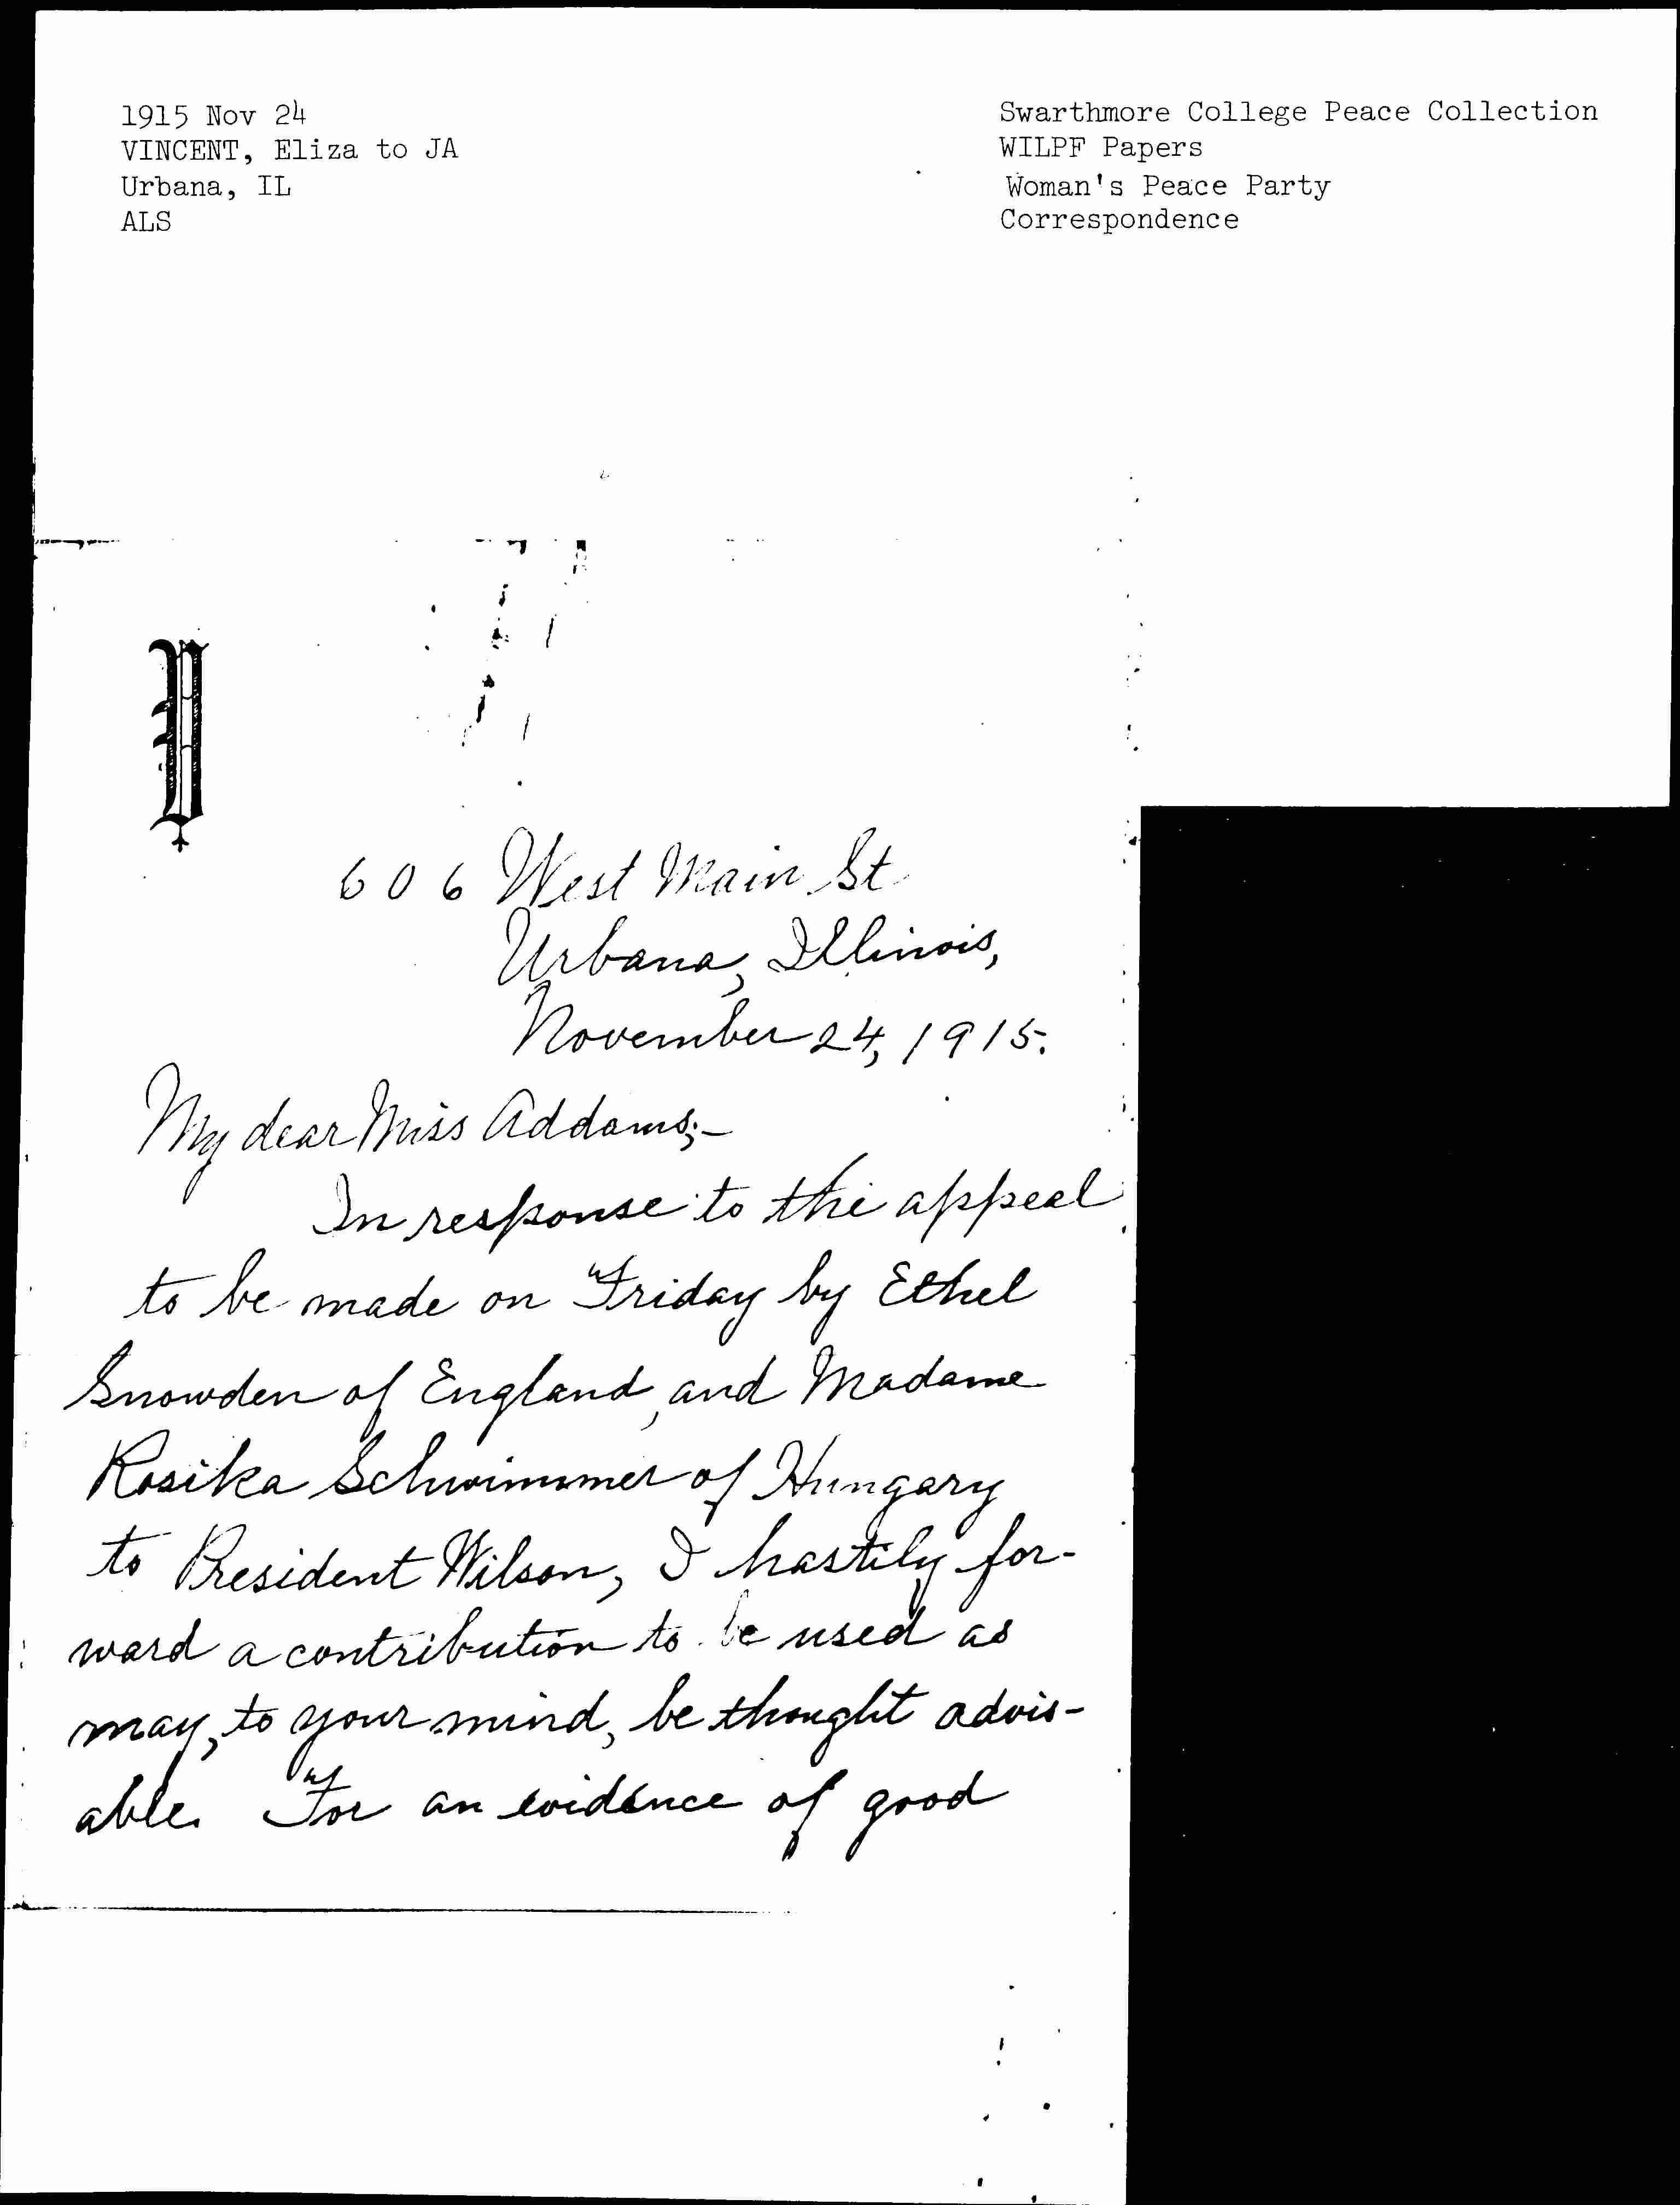 1915 Nov 24
VINCENT, Eliza to JA
Urbana, IL
ALS
Swarthmore College Peace Collection
WILPF Papers
Woman's Peace Party
Correspondence
606 West Main St
Urbana, Illinois,
November 24, 1915.
My dear Miss Addams;—
In response to the appeal
to be made on Friday by Ethel
Snowden of England, and Madame
Rosika Schwimmer of Hungary
to President Wilson, I hastily for-
ward a contribution to be used as
may, to your mind, be thought advis-
able. For an evidence of good